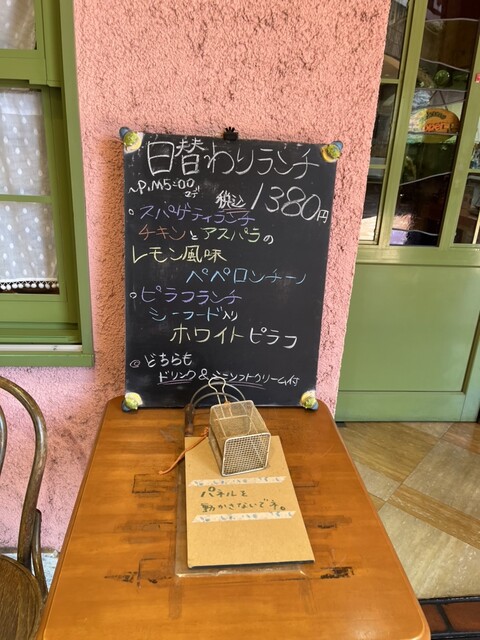 日替わりランチ
~P.M5:00まで
税込 1380円
◦スパゲティランチ
チキンとアスパラの
レモン風味
ペペロンチーノ
◦ピラフランチ
シーフード入り
ホワイトピラフ
◎どちらも
ドリンク&ミニソフトクリーム付
パネルを
動かさないで下。